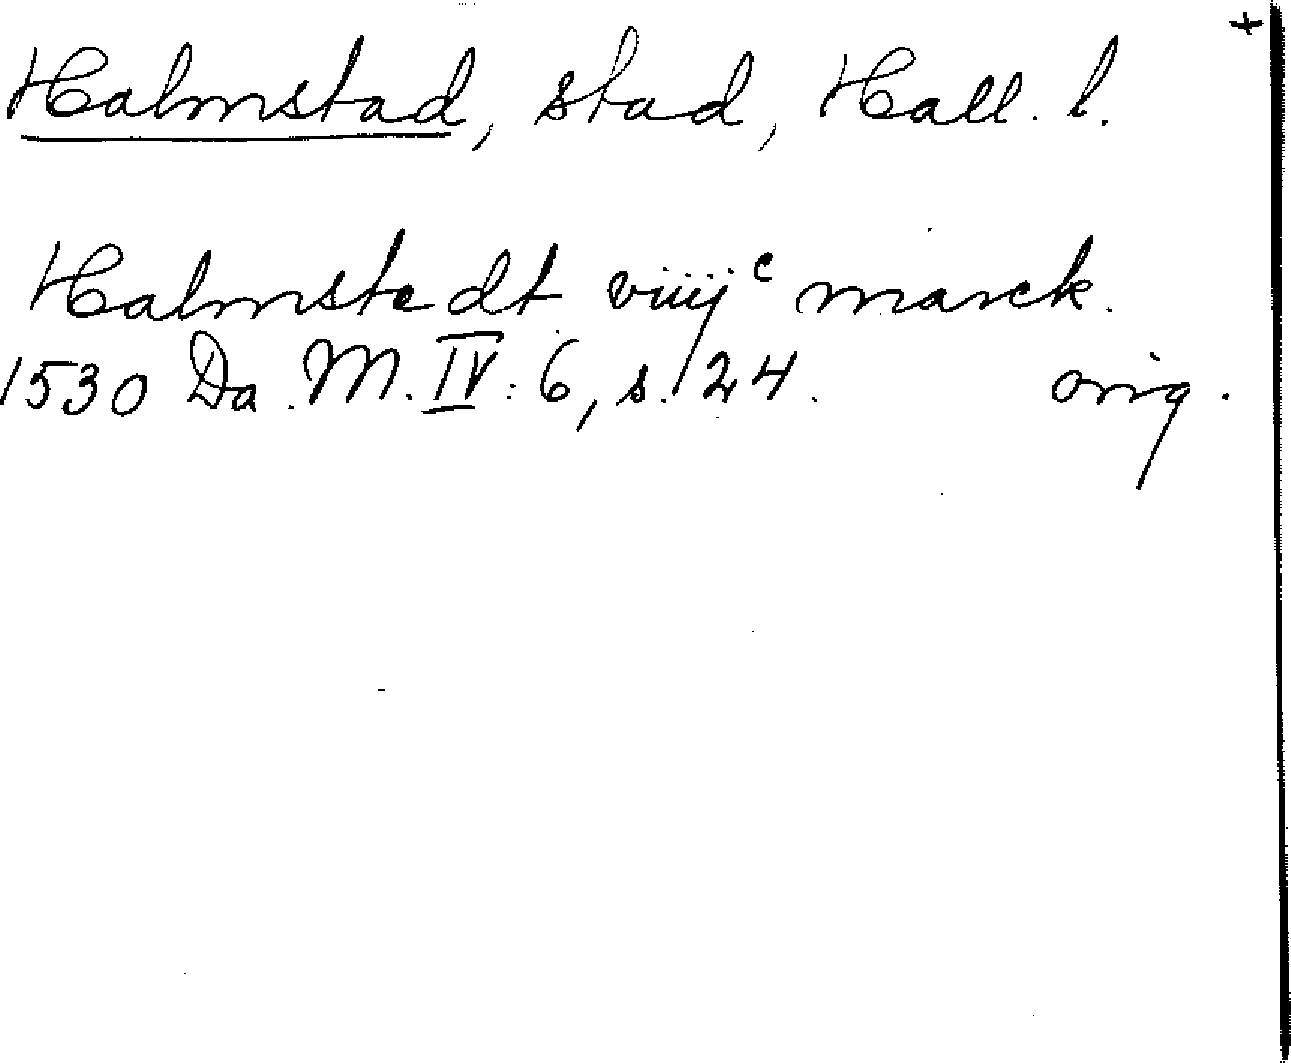 +
Halmstad, stad, Hall. l.
Halmstedt viiijᶜ marck.
1530 Da. M. IV: 6, s. 124. orig.